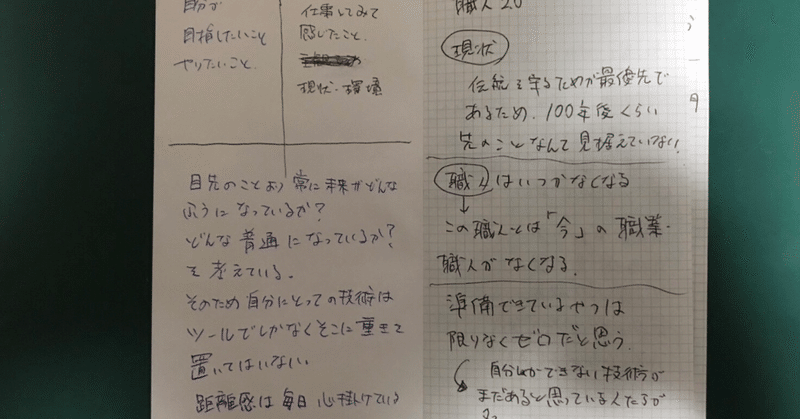 自分が
目指したいこと
やりたいこと.
仕事してみて
感じたこと.
現状・環境
目先のことより常に未来がどんな
ふうになっているか?
どんな普通になっているか?
を考えている.
そのため自分にとっての技術は
ツールでしかなくそこに重きを
置いてはいない.
距離感は毎日心掛けている
職人20
現状
伝統を守るためが最優先で
あるため、100年後くらい
先のことなんて見据えていない.
職人はいつかなくなる
この職人とは「今」の職業・
職人がなくなる.
準備できているやつは
限りなくゼロだと思う.
自分しかできない技術が
まだあると思っている